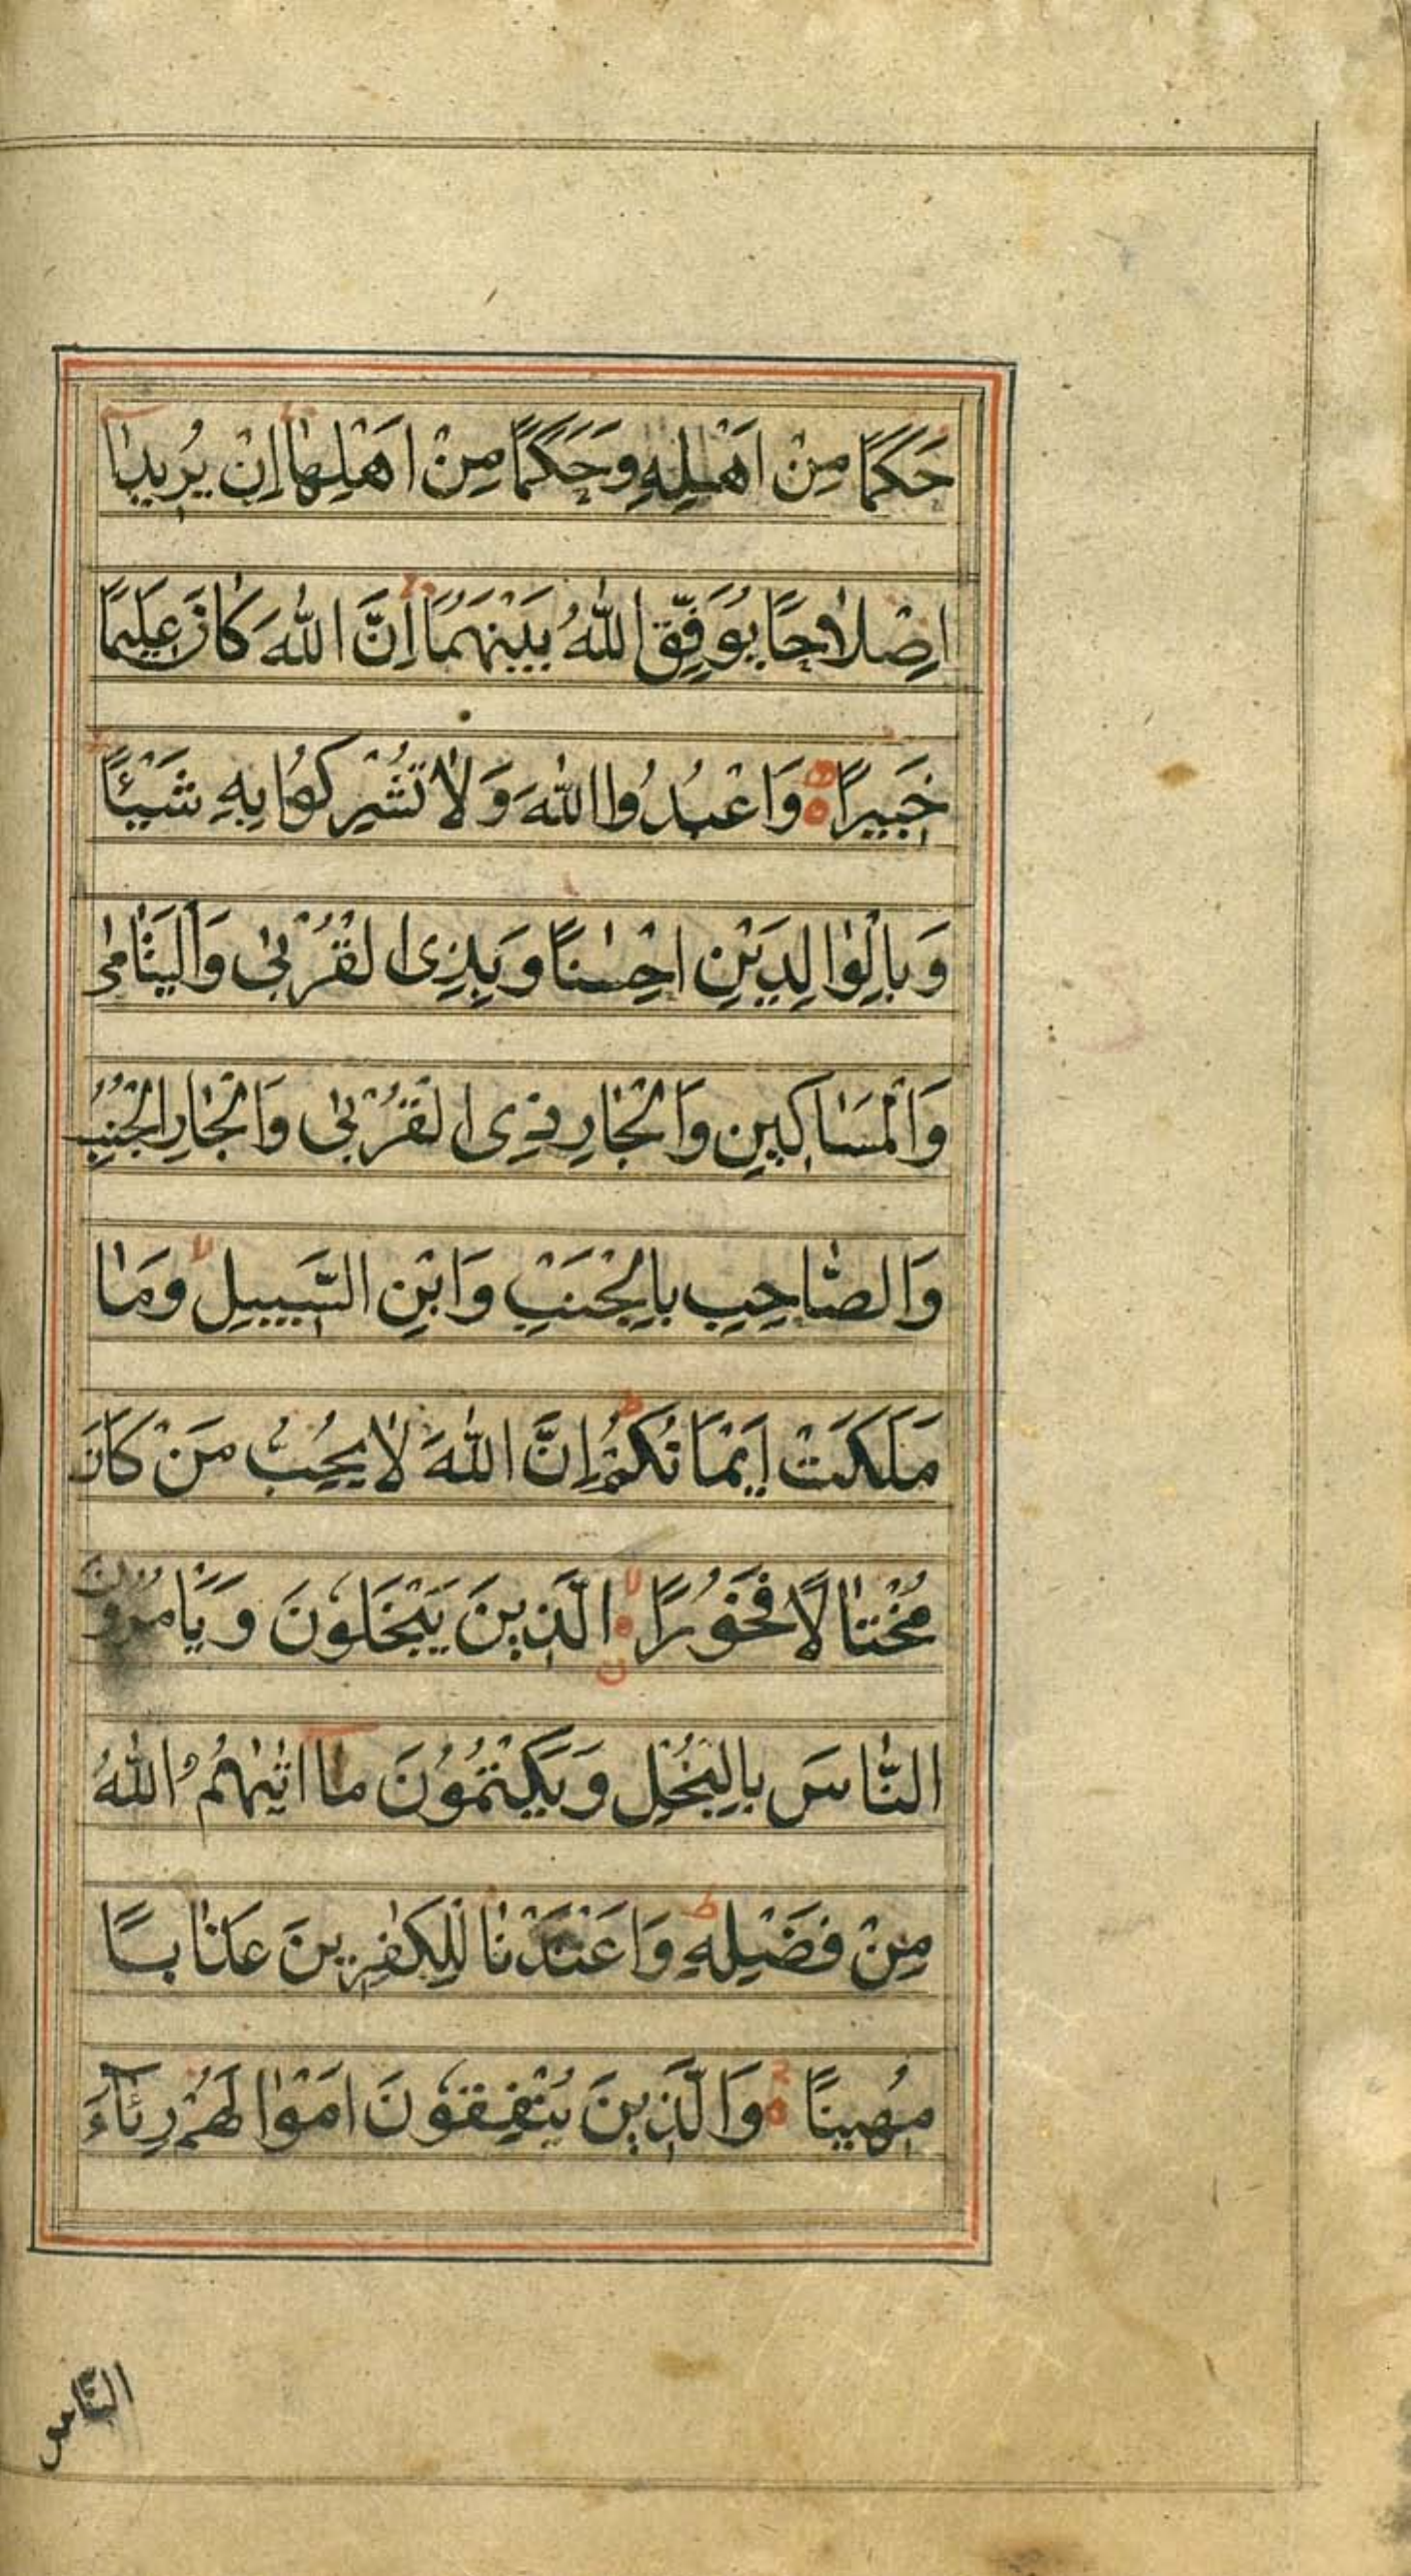 حَكَمًا مِنْ اَهْلِهٖ وَحَكَمًا مِنْ اَهْلِهٰا اِنْ يُرِيدٰا
اِصْلاٰحًا يُوَفِّقِ اللّٰهُ بَيْنَهُمَا اِنَّ اللّٰهَ كَانَ عَلِيمًا
خَبِيرًا وَاعْبُدُوا اللّٰهَ وَلاٰ تُشْرِكُوا بِهِ شَيْئًا
وَبِالْوٰالِدَيْنِ اِحْسٰنًا وَبِذِى الْقُرْبىٰ وَالْيَتٰامىٰ
وَالْمَسٰاكِينِ وَالْجٰارِ ذِى الْقُرْبىٰ وَالْجٰارِ الْجُنُبِ
وَالصّٰاحِبِ بِالْجَنْبِ وَابْنِ السَّبِيلِ وَمٰا
مَلَكَتْ اَيْمَانُكُمْ اِنَّ اللّٰهَ لاٰ يُحِبُّ مَنْ كَانَ
مُخْتٰالًا فَخُورًا الَّذِينَ يَبْخَلُونَ وَيَامُرُونَ
النّٰاسَ بِالْبُخْلِ وَيَكْتُمُونَ مٰا اٰتٰيهُمُ اللّٰهُ
مِنْ فَضْلِهٖ وَاَعْتَدْنٰا لِلْكٰفِرِينَ عَذٰابًا
مُهِينًا وَالَّذِينَ يُنْفِقُونَ اَمْوٰالَهُمْ رِئٰاۤءَ
النّٰاس